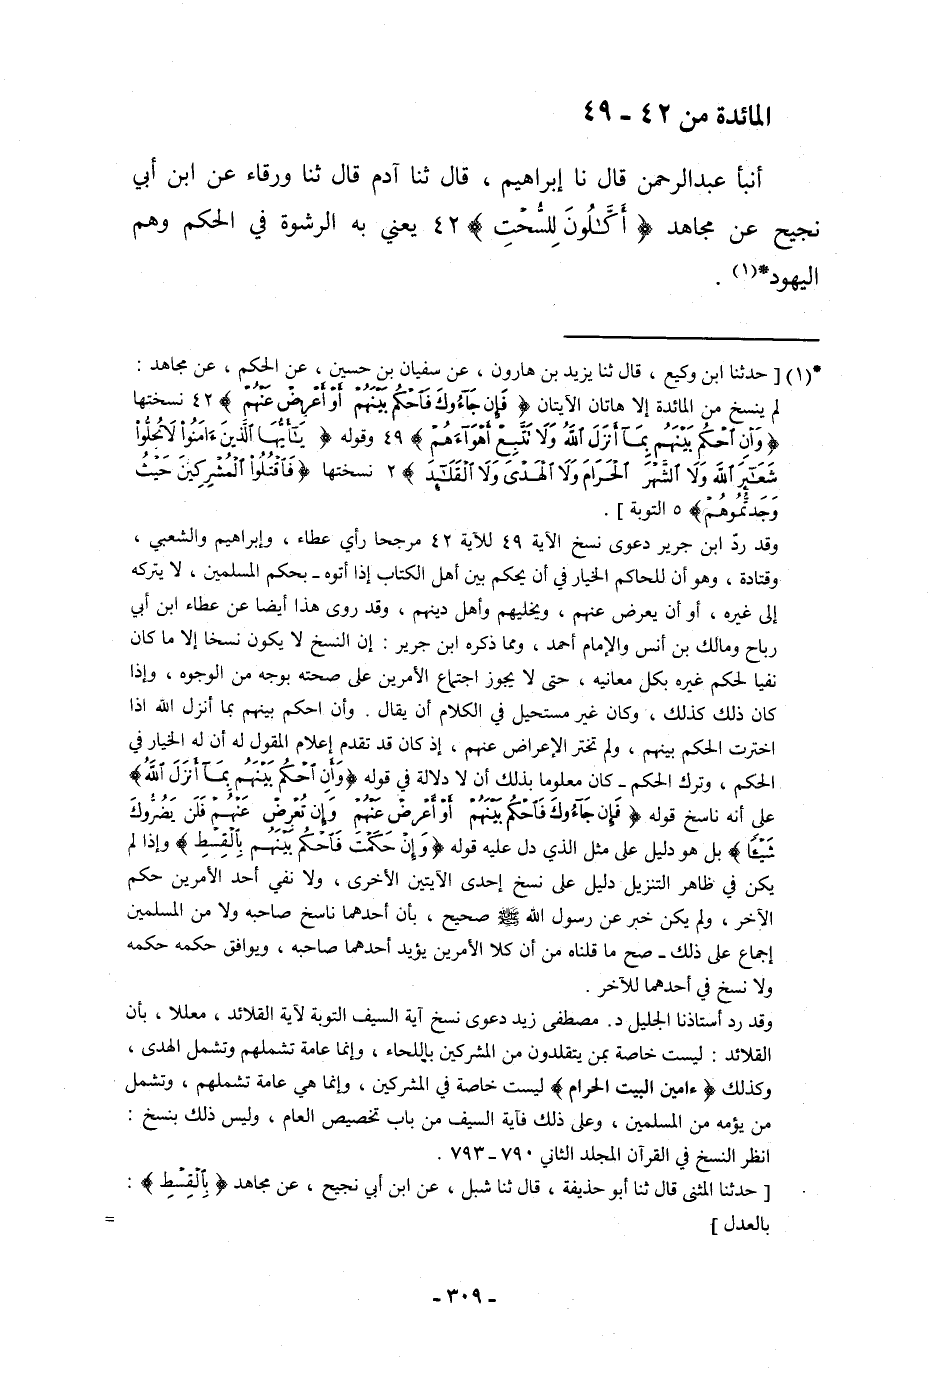 المائدة من ٤٢ - ٤٩
أنبأ عبدالرحمن قال نا إبراهيم ، قال ثنا آدم قال ثنا ورقاء عن ابن أبي
نجيح عن مجاهد ﴿ أَكَّـٰلُونَ لِلسُّحْتِ ﴾ ٤٢ يعني به الرشوة في الحكم وهم
اليهود*(١) .
*(١) [ حدثنا ابن وكيع ، قال ثنا يزيد بن هارون ، عن سفيان بن حسين ، عن الحكم ، عن مجاهد :
لم ينسخ من المائدة إلا هاتان الآيتان ﴿ فَإِن جَآءُوكَ فَٱحْكُم بَيْنَهُمْ أَوْ أَعْرِضْ عَنْهُمْ ﴾ ٤٢ نسختها
﴿ وَأَنِ ٱحْكُم بَيْنَهُم بِمَآ أَنزَلَ ٱللَّهُ وَلَا تَتَّبِعْ أَهْوَآءَهُمْ ﴾ ٤٩ وقوله ﴿ يَـٰٓأَيُّهَا ٱلَّذِينَ ءَامَنُوا۟ لَا تُحِلُّوا۟
شَعَـٰٓئِرَ ٱللَّهِ وَلَا ٱلشَّهْرَ ٱلْحَرَامَ وَلَا ٱلْهَدْىَ وَلَا ٱلْقَلَـٰٓئِدَ ﴾ ٢ نسختها ﴿ فَٱقْتُلُوا۟ ٱلْمُشْرِكِينَ حَيْثُ
وَجَدتُّمُوهُمْ ﴾ ٥ التوبة ] .
وقد ردّ ابن جرير دعوى نسخ الآية ٤٩ للآية ٤٢ مرجحا رأي عطاء ، وإبراهيم والشعبي ،
وقتادة ، وهو أن للحاكم الخيار في أن يحكم بين أهل الكتاب إذا أتوه ـ بحكم المسلمين ، لا يتركه
إلى غيره ، أو أن يعرض عنهم ، ويخليهم وأهل دينهم ، وقد روى هذا أيضا عن عطاء ابن أبي
رباح ومالك بن أنس والإمام أحمد ، ومما ذكره ابن جرير : إن النسخ لا يكون نسخا إلا ما كان
نفيا لحكم غيره بكل معانيه ، حتى لا يجوز اجتماع الأمرين على صحته بوجه من الوجوه ، وإذا
كان ذلك كذلك ، وكان غير مستحيل في الكلام أن يقال . وأن احكم بينهم بما أنزل الله اذا
اخترت الحكم بينهم ، ولم تختر الإعراض عنهم ، إذ كان قد تقدم إعلام المقول له أن له الخيار في
الحكم ، وترك الحكم ـ كان معلوما بذلك أن لا دلالة في قوله ﴿ وَأَنِ ٱحْكُم بَيْنَهُم بِمَآ أَنزَلَ ٱللَّهُ ﴾
على أنه ناسخ قوله ﴿ فَإِن جَآءُوكَ فَٱحْكُم بَيْنَهُمْ أَوْ أَعْرِضْ عَنْهُمْ وَإِن تُعْرِضْ عَنْهُمْ فَلَن يَضُرُّوكَ
شَيْـًٔا ﴾ بل هو دليل على مثل الذي دل عليه قوله ﴿ وَإِنْ حَكَمْتَ فَٱحْكُم بَيْنَهُم بِٱلْقِسْطِ ﴾ وإذا لم
يكن في ظاهر التنزيل دليل على نسخ إحدى الآيتين الأخرى ، ولا نفي أحد الأمرين حكم
الآخر ، ولم يكن خبر عن رسول الله ﷺ صحيح ، بأن أحدهما ناسخ صاحبه ولا من المسلمين
إجماع على ذلك ـ صح ما قلناه من أن كلا الأمرين يؤيد أحدهما صاحبه ، ويوافق حكمه حكمه
ولا نسخ في أحدهما للآخر .
وقد رد أستاذنا الجليل د. مصطفى زيد دعوى نسخ آية السيف التوبة لآية القلائد ، معللا ، بأن
القلائد : ليست خاصة بمن يتقلدون من المشركين باللحاء ، وإنما عامة تشملهم وتشمل الهدى ،
وكذلك ﴿ ءامين البيت الحرام ﴾ ليست خاصة في المشركين ، وإنما هي عامة تشملهم ، وتشمل
من يؤمه من المسلمين ، وعلى ذلك فآية السيف من باب تخصيص العام ، وليس ذلك بنسخ :
انظر النسخ في القرآن المجلد الثاني ٧٩٠ ـ ٧٩٣ .
[ حدثنا المثنى قال ثنا أبو حذيفة ، قال ثنا شبل ، عن ابن أبي نجيح ، عن مجاهد ﴿ بِٱلْقِسْطِ ﴾ :
بالعدل ] =
- ٣٠٩ -